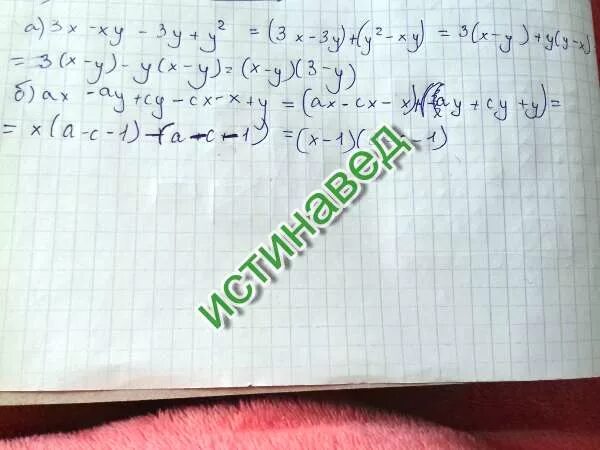 а) 3x - xy - 3y + y² = (3x - 3y) + (y² - xy) = 3(x - y) + y(y - x)
= 3(x - y) - y(x - y) = (x - y)(3 - y)
б) ax - ay + cy - cx - x + y = (ax - cx - x) + (-ay + cy + y) =
= x(a - c - 1) - (a - c - 1) = (x - 1)( - 1)
истинавед